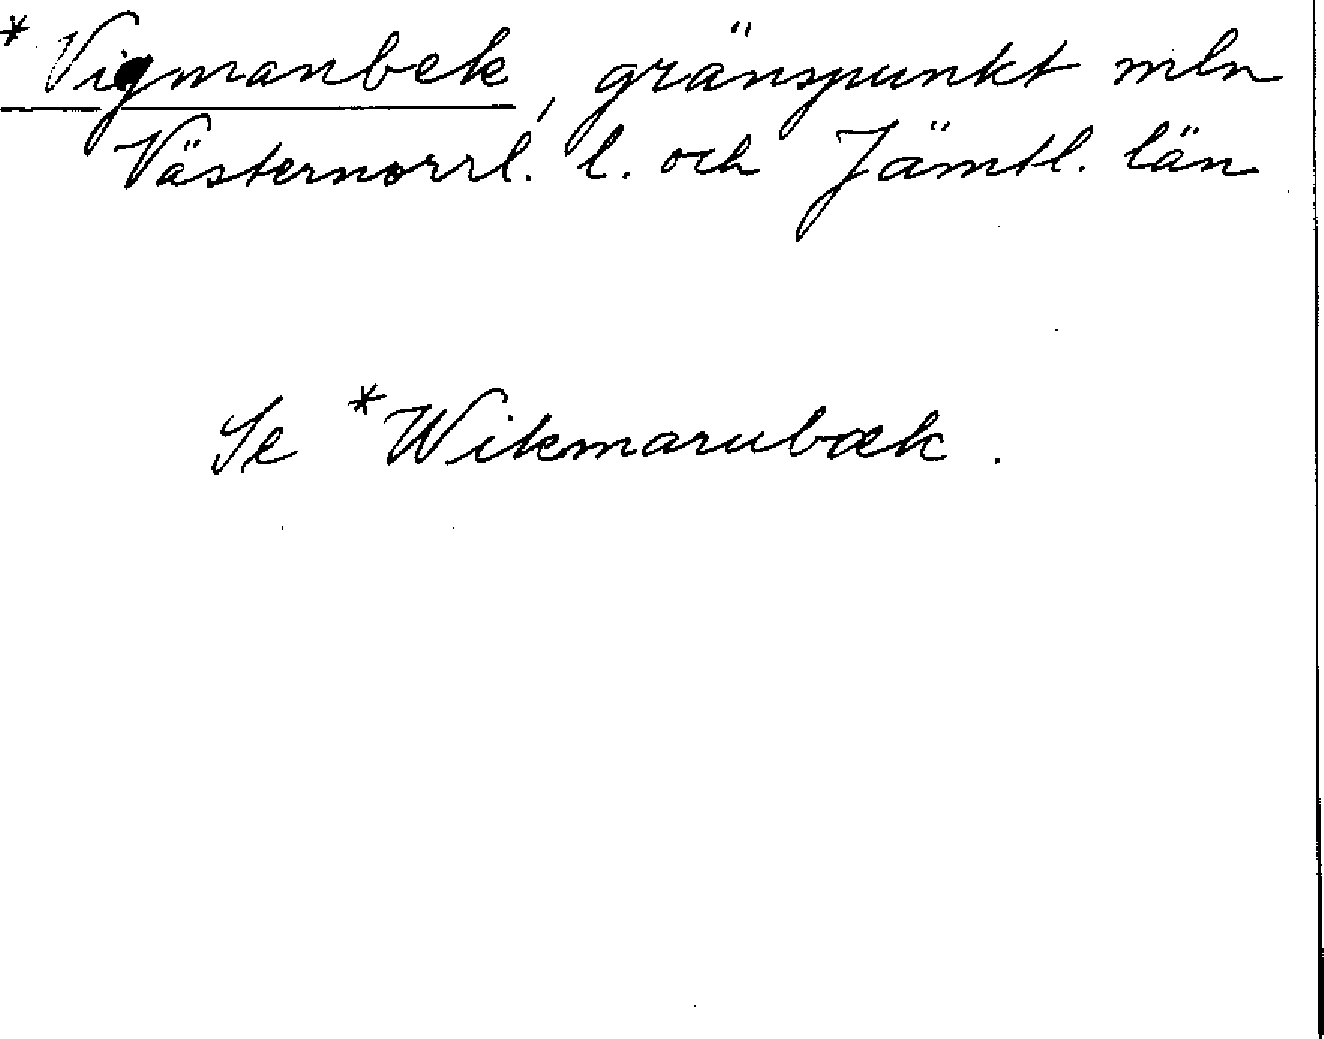 *Vigmanbek, gränspunkt mln
Västernorrl. l. och Jämtl. län
Se *Wikmarubæk.